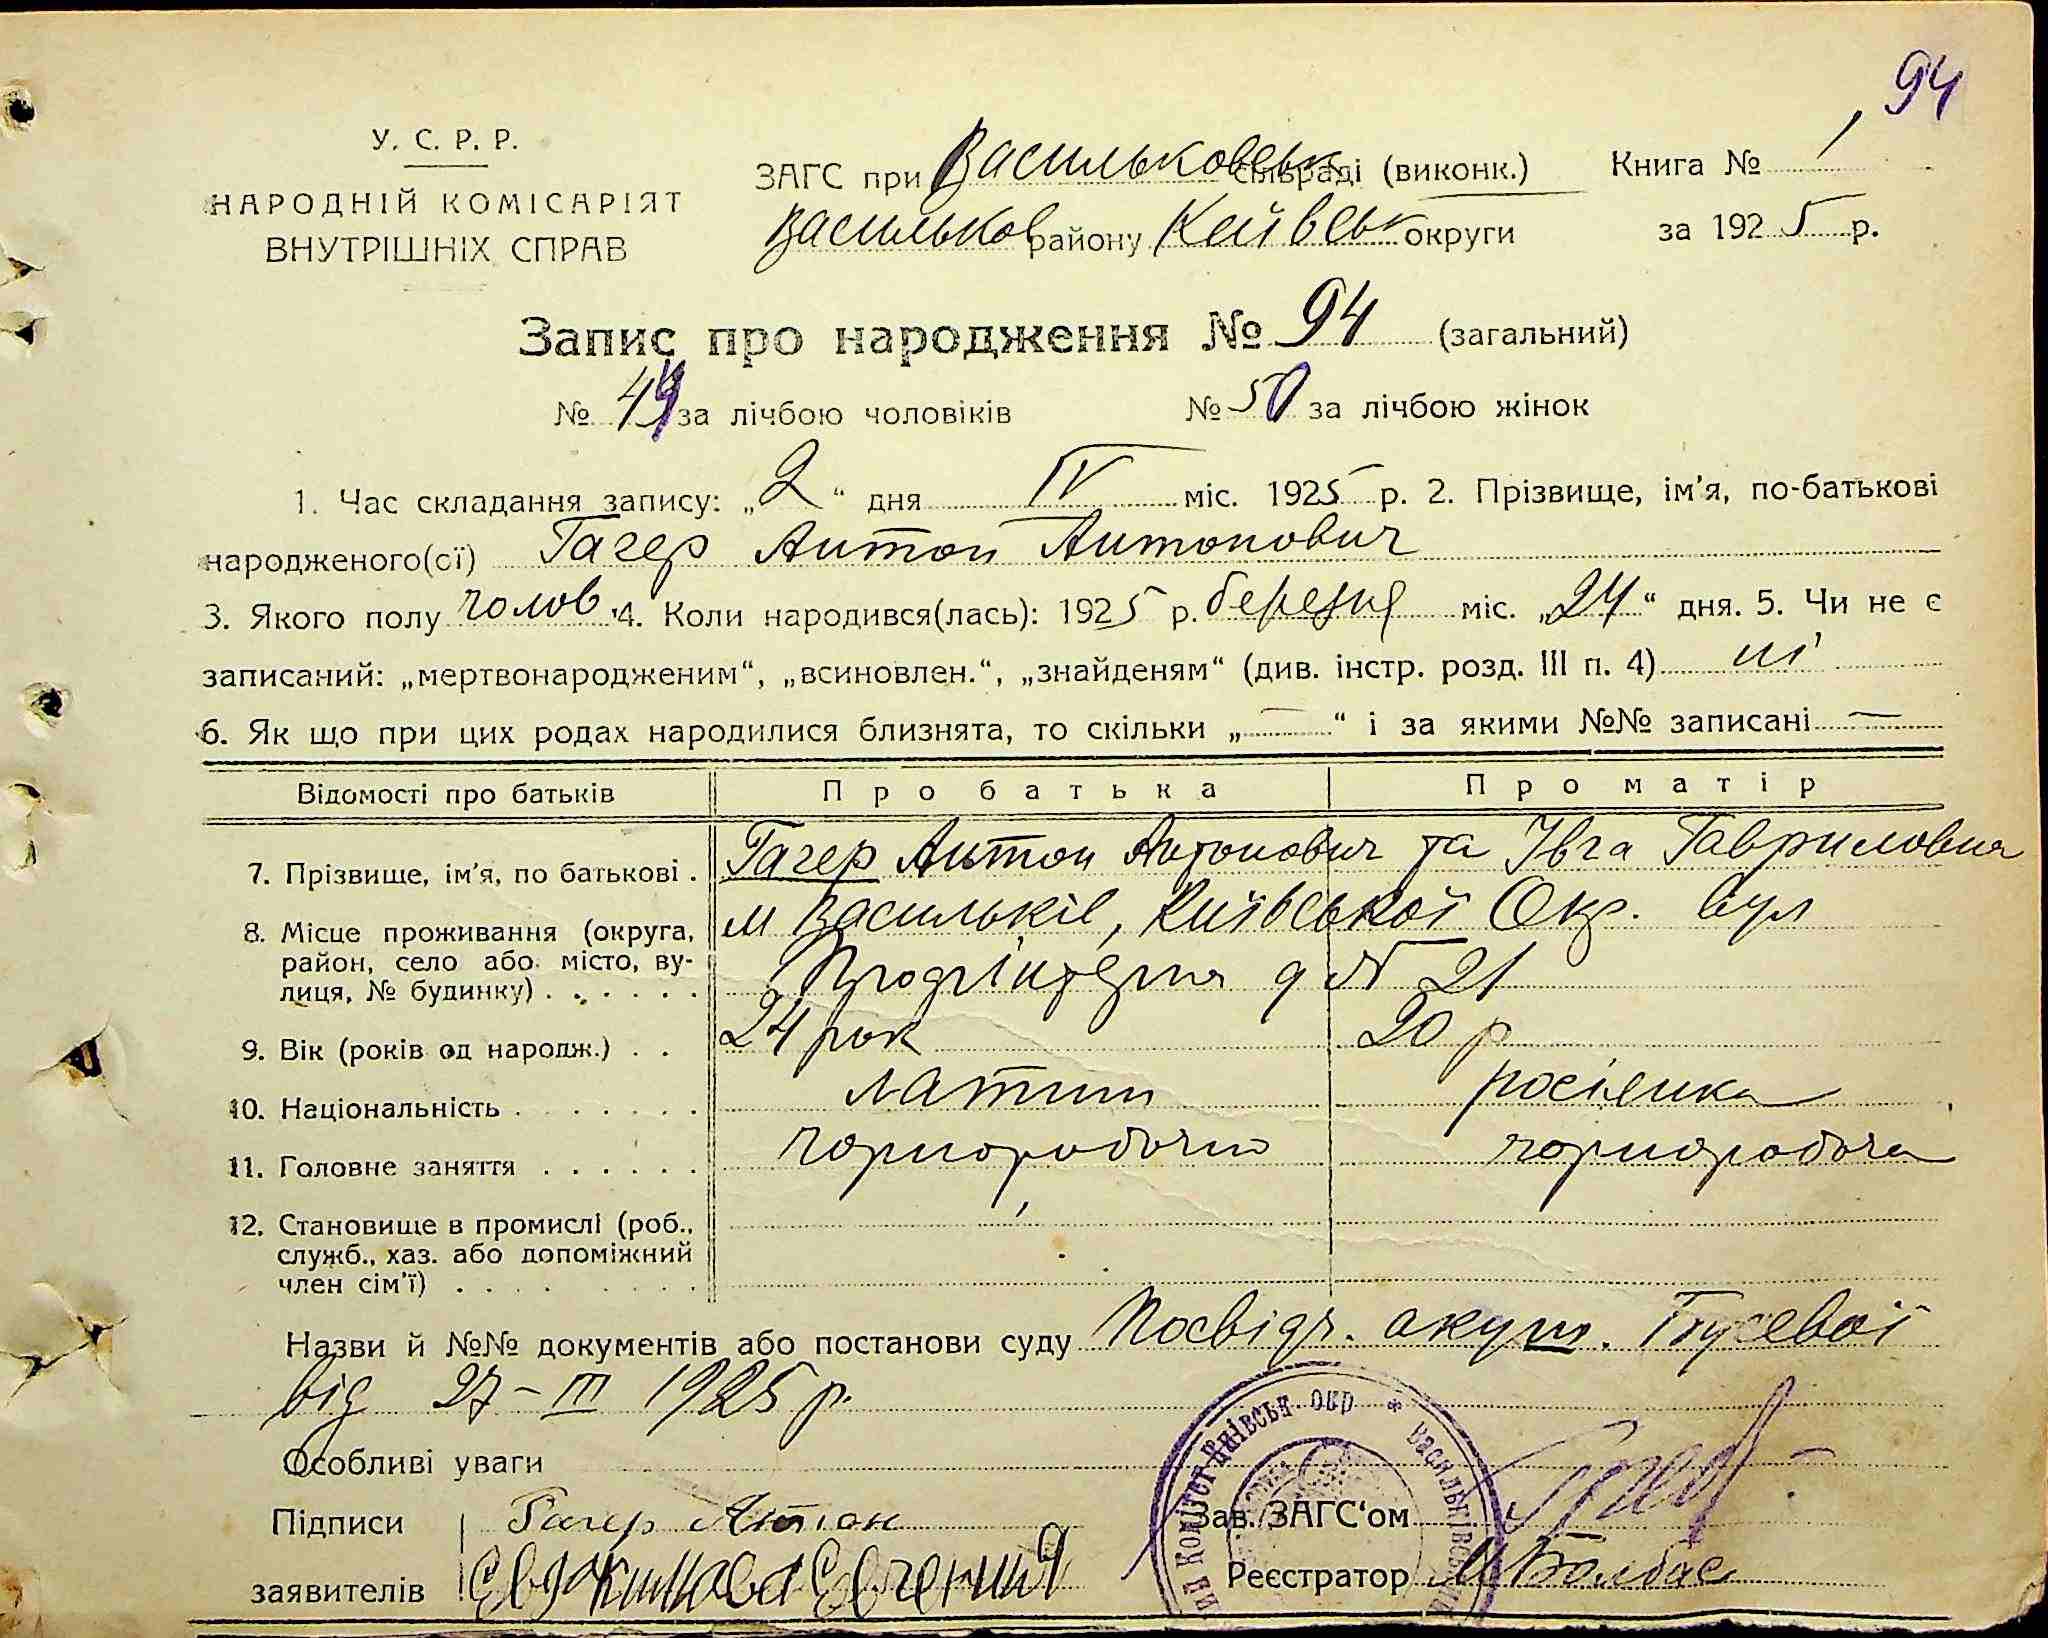 94
У. С. Р. Р.
НАРОДНІЙ КОМІСАРІЯТ
ВНУТРІШНІХ СПРАВ
ЗАГС при Васильковськ сільраді (виконк.) Книга № 1
Васильков району Київськ округи за 1925 р.
Запис про народження № 94 (загальний)
№ 44 за лічбою чоловіків № 50 за лічбою жінок
1. Час складання запису: „2“ дня IV міс. 1925 р. 2. Прізвище, ім'я, по-батькові
народженого(сї) Гагер Антон Антонович
3. Якого полу чолов. 4. Коли народився(лась): 1925 р. березня міс. „24“ дня. 5. Чи не є
записаний: „мертвонародженим“, „всиновлен.“, „знайденям“ (див. інстр. розд. III п. 4) ні
6. Як що при цих родах народилися близнята, то скільки „—“ і за якими №№ записані —
Відомості про батьків Про батька Про матір
7. Прізвище, ім'я, по батькові . Гагер Антон Антонович та Івга Гавриловна
8. Місце проживання (округа, район, село або місто, вулиця, № будинку) . . . . . . м Васильків, Київської Окр. вул
д № 21
9. Вік (років од народж.) . . 24 рок 20 р
10. Національність . . . . . . . латиш росіянка
11. Головне заняття . . . . . . чорноробочий чорноробоча
12. Становище в промислі (роб., служб., хаз. або допоміжний член сім'ї) . . . .
Назви й №№ документів або постанови суду Посвідч. акуш. Гусевої
від 27 – III 1925 р.
Особливі уваги
Підписи Гагер Антон Зав. ЗАГС'ом
заявителів Евдокимова Евгения Реєстратор М Болбас
Київськ. окр * Васильківський